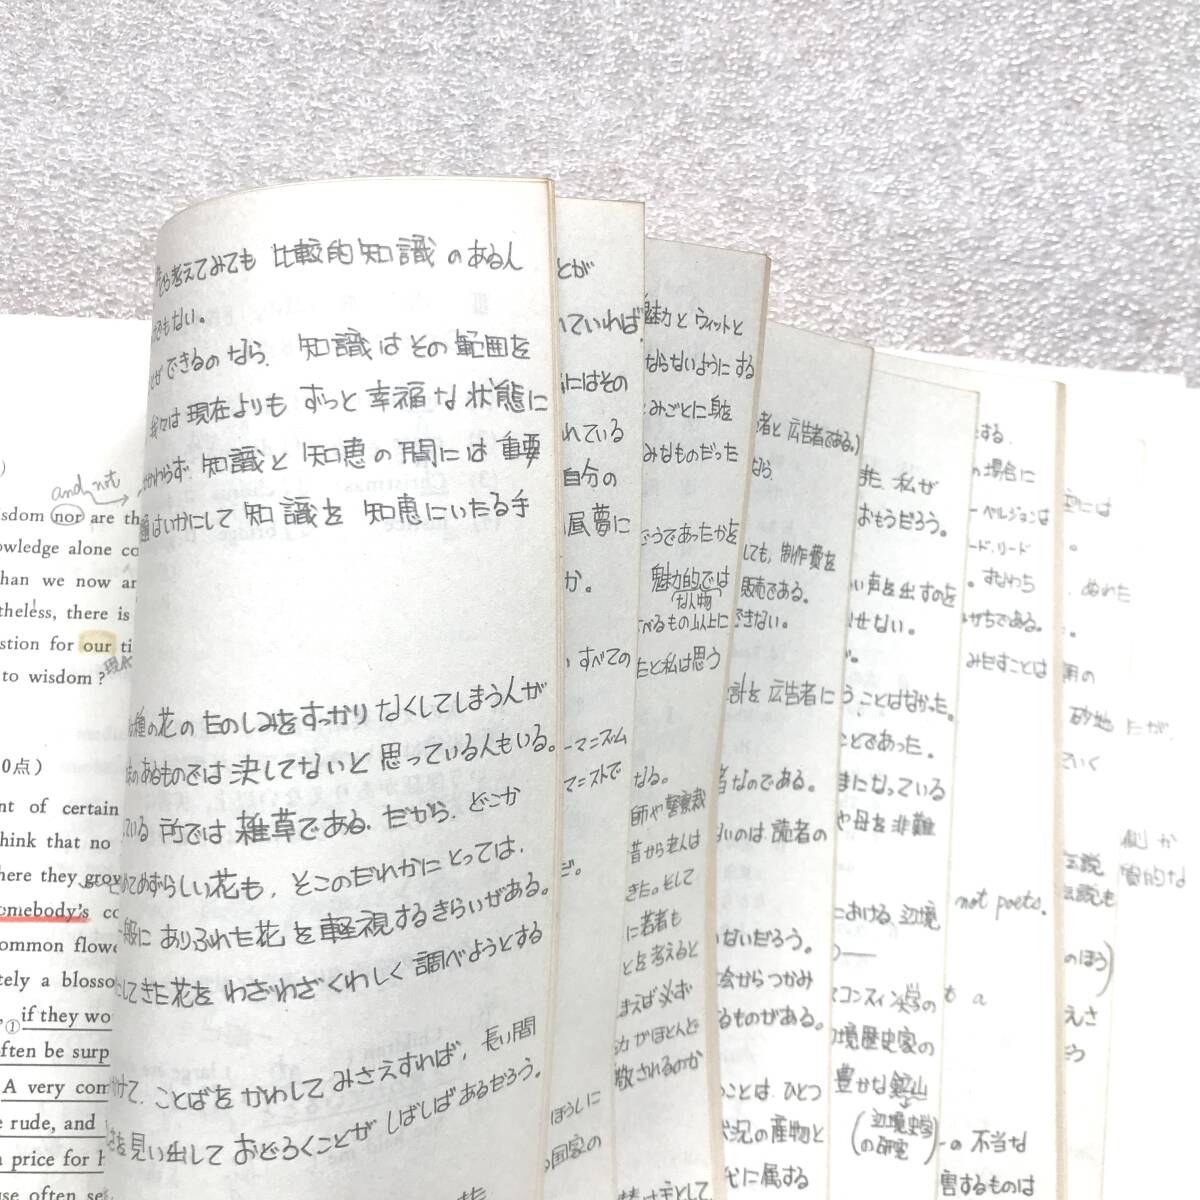 and not
wisdom nor are th
owledge alone co
han we now ar
theless, there is
stion for our ti
to wisdom?
0点)
nt of certain
hink that no
here they grow
omebody's co
ommon flowe
tely a blosso
① if they wo
ften be surp
A very com
rude, and
price for h
use often se
考えてみても 比較的知識のあるん
でもない。
ができるのなら、知識はその範囲を
我々は現在よりも ずっと幸福な状態に
かかわらず、知識と知恵の間には重要
題はいかにして知識を知恵にいたる手
種の花のたのしみをすっかりなくしてしまう人が
のあるものでは決してないと思っている人もいる。
ている所では雑草である。だから、どこか
めてめずらしい花も、そこのだれかにとっては、
一般にありふれた花を軽視するきらいがある。
してきた花をわざわざくわしく調べようとする
かけて、ことばをかわしてみさえすれば、長い間
を見い出しておどろくことがしばしばあるだろう。
とが
れていれば
にはその
れている
自分の
昼夢に
か。
すべての
ーマニズム
マニストで
だ。
ほうしに
国家の
魅力とウィットと
ならないようにする
みごとに身を
みなものだった
どうであったかを
魅力的では
な人物
べるもの以上に
たと私は思う
なる。
師や警察裁
昔から老人は
きた。そして
に若者も
とを考えると
まえば必ず
力がほとんど
敬されるのか
者と広告者である。)
なら、
しても、制作費を
販売である。
できない。
計を広告者に
者なのである。
いのは、読者の
ないだろう。
会からつかみ
るものがある。
ことは、ひとつ
状況の産物と
代に属する
また、私が
おもうだろう。
い声を出すのを
せない。
うことはなかった。
ことであった。
まになっている
や母を非難
における、辺境
スコンスィン大学の
境歴史家の
豊かな鉱山
(辺境史学の研究)
とする
の場合に
ーベルジョンは
ード・リード
。すなわち
がちである。
みたすことは
not poets.
t a
の不当な
害するものは
には
ぬれた
用の
砂地 にが
ていく
側か
質的な
伝説
伝説も
のほう)
えさ